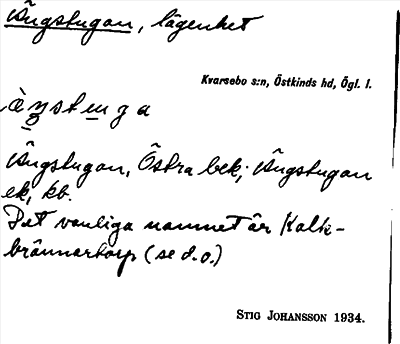 Ängstugan, lägenhet
Kvarsebo s:n, Östkinds hd, Ögl. l.
Ängstugan, Östra bek; Ängstugan
ek, kb.
Det vanliga namnet är Kalk-
brännartorp (se d.o.)
STIG JOHANSSON 1934.